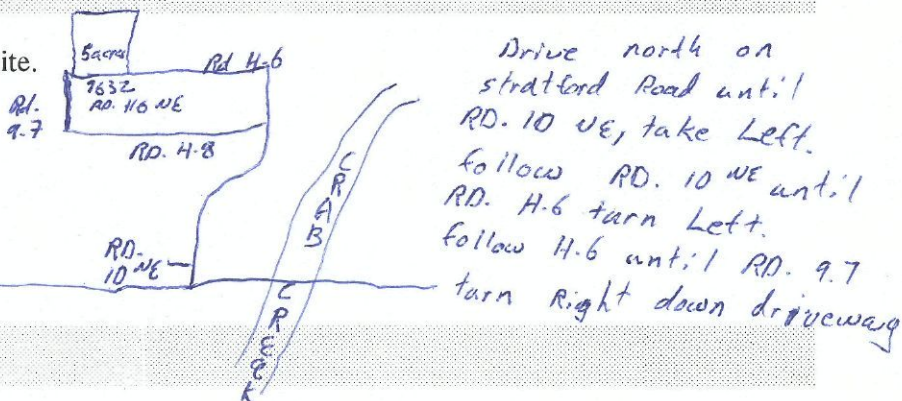 ite.
5acres
Rd H-6
9632
RD. H6 NE
Rd.
9.7
RD. H-8
RD.
10 NE
CRAB
CREEK
Drive north on
stratford Road until
RD. 10 NE, take Left.
follow RD. 10 NE until
RD. H-6 turn Left.
follow H-6 until RD. 9.7
turn Right down driveway